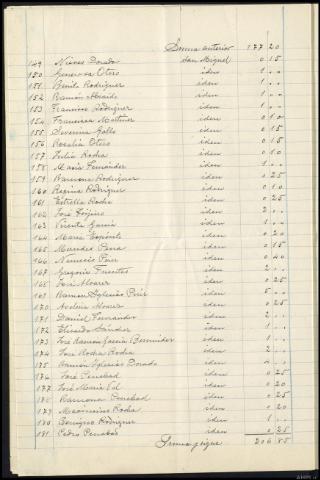 Suma anterior 177 20
149 Nieves Dorado San Miguel 0 15
150 Genoveva Otero iden 1 "
151 Benito Rodriguez iden 1 "
152 Ramón iden 1 "
153 Francisco Rodriguez iden 1 "
154 Francisca Martinez iden 0 10
155 Severina Gallo iden 0 15
156 Rosalia Otero iden 0 15
157 Julia Rocha iden 0 10
158 Maria Fernández iden 1 "
159 Ramona Rodriguez iden 0 25
160 Regina Rodriguez iden 0 10
161 Estrella Rocha iden 0 25
162 José iden 2 "
163 Vicente Garcia iden 1 "
164 Maria Expósito iden 0 20
165 Mercedes iden 0 15
166 Nemesio Pérez iden 0 40
167 Gregorio Fuentes iden 2 "
168 José Alvarez iden 0 25
169 Ramon Iglesias iden 5 "
170 Avelina Alvarez iden 0 25
171 Daniel Fernandez iden 2 "
172 Eliseo iden 1 "
173 José Ramon Garcia Bermudez iden 1 "
174 José Rocha Rocha iden 2 "
175 Ramón Iglesias Dorado iden
176 José Penabad iden 0 25
177 José Maria Gil iden 0 20
178 Ramona Penabad iden 0 25
179 Maximino Rocha iden 0 20
180 Benigno Rodriguez iden 1 "
181 Pedro Penabad iden 0 25
Suma y sigue 206 85